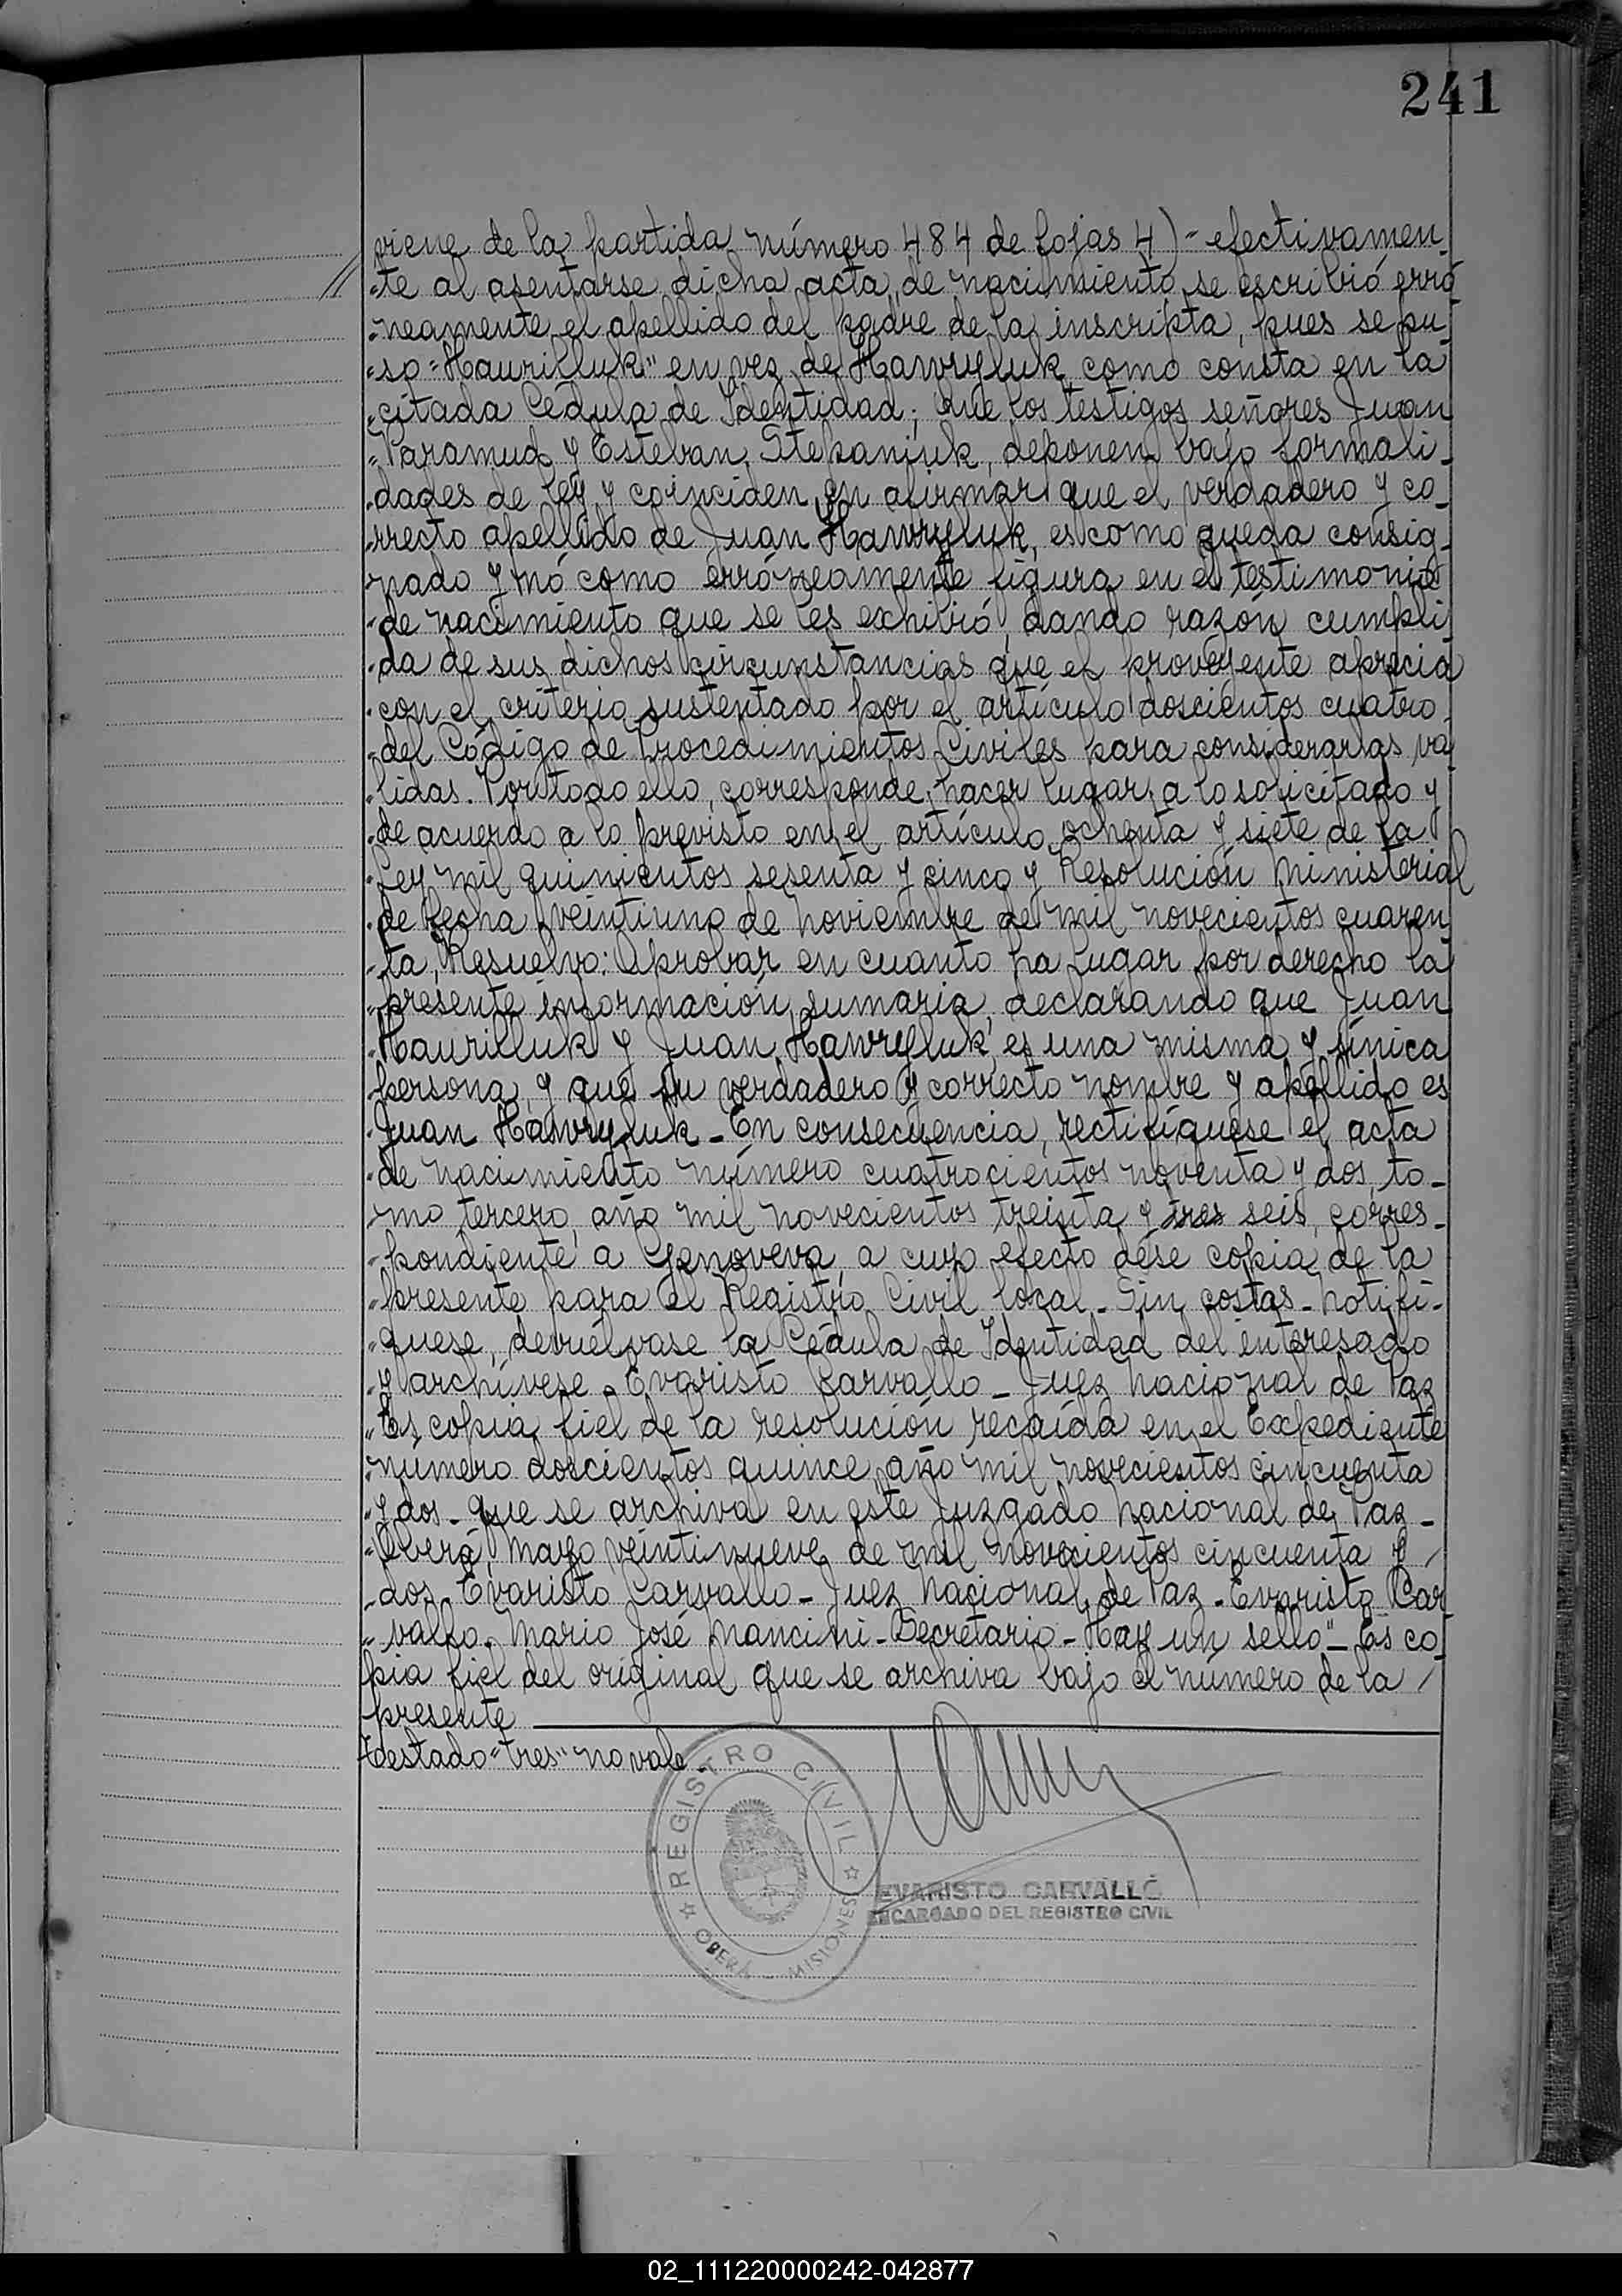 241
viene de la partida número 484 de fojas 4) - efectivamen-
// "te al asentarse dicha acta de nacimiento, se escribió erró
"neamente el apellido del padre de la inscripta, pues se pu
"so "Haurilluk" en vez de Hawryluk, como consta en la
"citada Cédula de Identidad; que los testigos señores Juan
"Paramud y Esteban Stepaniuk, deponen bajo formali-
"dades de ley y coinciden en afirmar que el verdadero y co-
"rrecto apellido de Juan Hawryluk, es como queda consig-
"nado y nó como erróneamente figura en el testimonio
"de nacimiento que se les exhibió, dando razón cumpli
"da de sus dichos circunstancias que el proveyente aprecia
"con el criterio sustentado por el artículo doscientos cuatro
"del Código de Procedimientos Civiles para considerarlas vá
"lidas. Por todo ello, corresponde hacer lugar a lo solicitado y
"de acuerdo a lo previsto en el artículo ochenta y siete de la
"Ley mil quinientos sesenta y cinco y Resolución Ministerial
"de fecha veintiuno de noviembre de mil novecientos cuaren
"ta, Resuelvo: Aprobar en cuanto ha lugar por derecho la
"presente información sumaria, declarando que Juan
"Haurilluk y Juan Hawryluk es una misma y única
"persona, y que su verdadero y correcto nombre y apellido es
"Juan Hawryluk - En consecuencia, rectifíquese el acta
"de nacimiento número cuatrocientos noventa y dos, to-
"mo tercero, año mil novecientos treinta y tres seis, corres-
"pondiente a Genoveva, a cuyo efecto dése copia de la
"presente para el Registro Civil local - Sin costas - Notifí-
"quese, devuélvase la Cédula de Identidad del interesado
"y archívese - Evaristo Carvallo - Juez Nacional de Paz
"Es copia fiel de la resolución recaída en el Expediente
"numero doscientos quince año mil novecientos cincuenta
"y dos - que se archiva en este Juzgado Nacional de Paz -
"Oberá, Mayo veintinueve de mil novecientos cincuenta y /
"dos - Evaristo Carvallo - Juez Nacional de Paz - Evaristo Car
"vallo. Mario José Mancini - Secretario - Hay un sello" - Es co
pia fiel del original que se archiva bajo el número de la /
presente
Testado "tres" no vale -
REGISTRO CIVIL
OBERÁ - MISIONES
EVARISTO CARVALLO
ENCARGADO DEL REGISTRO CIVIL
02_111220000242-042877